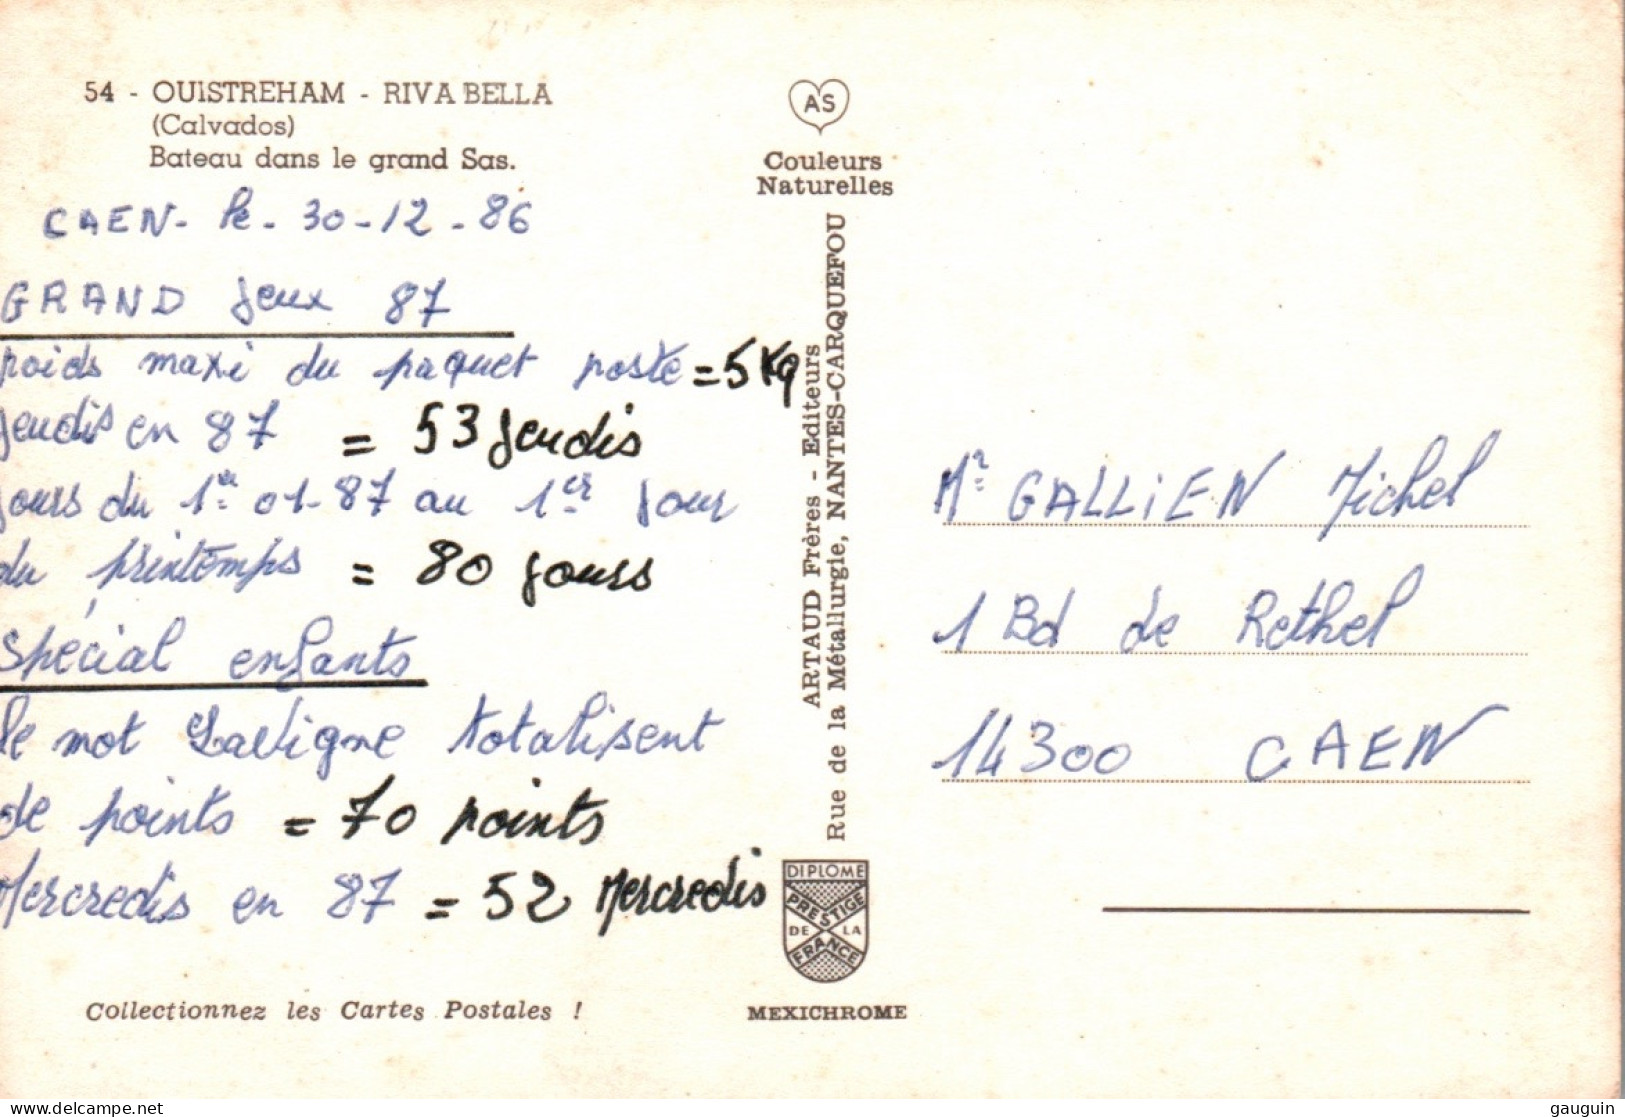 54 - OUISTREHAM - RIVA BELLA
(Calvados)
Bateau dans le grand Sas.
CAEN - le - 30 - 12 - 86
GRAND Jeux 87
poids maxi du paquet poste = 5 Kg
jeudis en 87 = 53 jeudis
jours du 1er 01-87 au 1er jour
du printemps = 80 jours
spécial enfants
le mot totalisent
de points = 70 points
Mercredis en 87 = 52 Mercredis
Collectionnez les Cartes Postales !
AS
Couleurs
Naturelles
ARTAUD Frères - Editeurs
Rue de la Métallurgie, NANTES-CARQUEFOU
DIPLOME
PRESTIGE
DE LA
FRANCE
MEXICHROME
Mr GALLiEN Michel
1 Bd de Rethel
14300 CAEN
gauguin